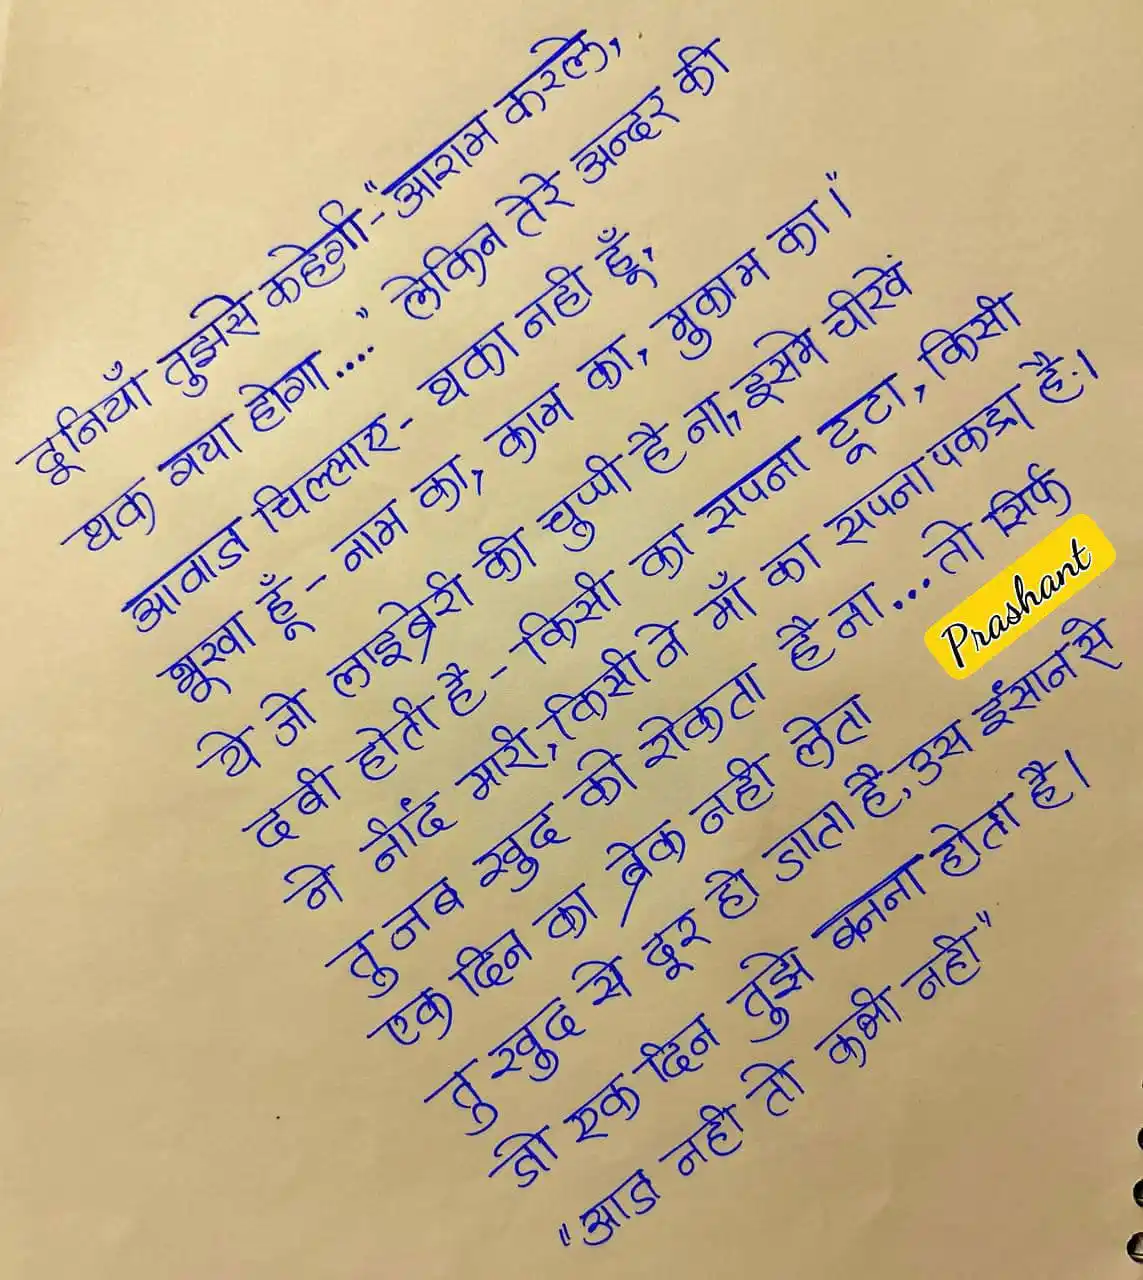 दूनियाँ तुझसे कहेगी-"आराम करले,
थक गया होगा...." लेकिन तेरे अन्दर की
आवाज चिल्लाए- थका नही हूँ,
भूखा हूँ - नाम का, काम का, मुकाम का।"
ये जो लाइब्रेरी की चुप्पी है ना, इसमे चीखें
दबी होती है - किसी का सपना टूटा, किसी
ने नींद मारी, किसी ने माँ का सपना पकडा है।
तु जब खुद को रोकता है ना... तो सिर्फ
एक दिन का ब्रेक नही लेता
तु खुद से दूर हो जाता है, उस इंसान से
जो एक दिन तुझे बनना होता है।
"आज नही तो कभी नही"
Prashant